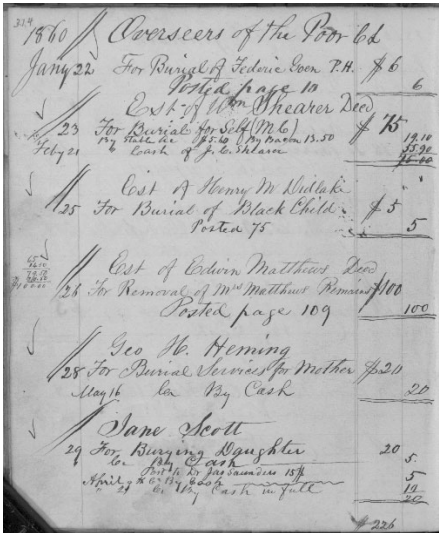 314
1860 Overseers of the Poor Cd
Jany 22 For Burial of Federic Goen P.H. $6
Posted page 10 6
Est of Wm Shearer Deed
23 For Burial for Self (M C) $75
By Stable &c $5.60 By Bacon 13.50 19.10
Feby 21 " Cash of J. C. Shearer 55.90
75.00
Est of Henry M Didlake
25 For Burial of Black Child $5
Posted 75 5
Est of Edwin Matthews Deed
26 For Removal of Mrs Matthews Remains $100
Posted page 109 100
Geo H. Heming
28 For Burial Services for Mother $20
May 16 Cr By Cash 20
Jane Scott
29 For Burying Daughter 20
Cr By Cash 5.
Jas Saunders 5
April By Cash
Cr By Cash in full 20
$226